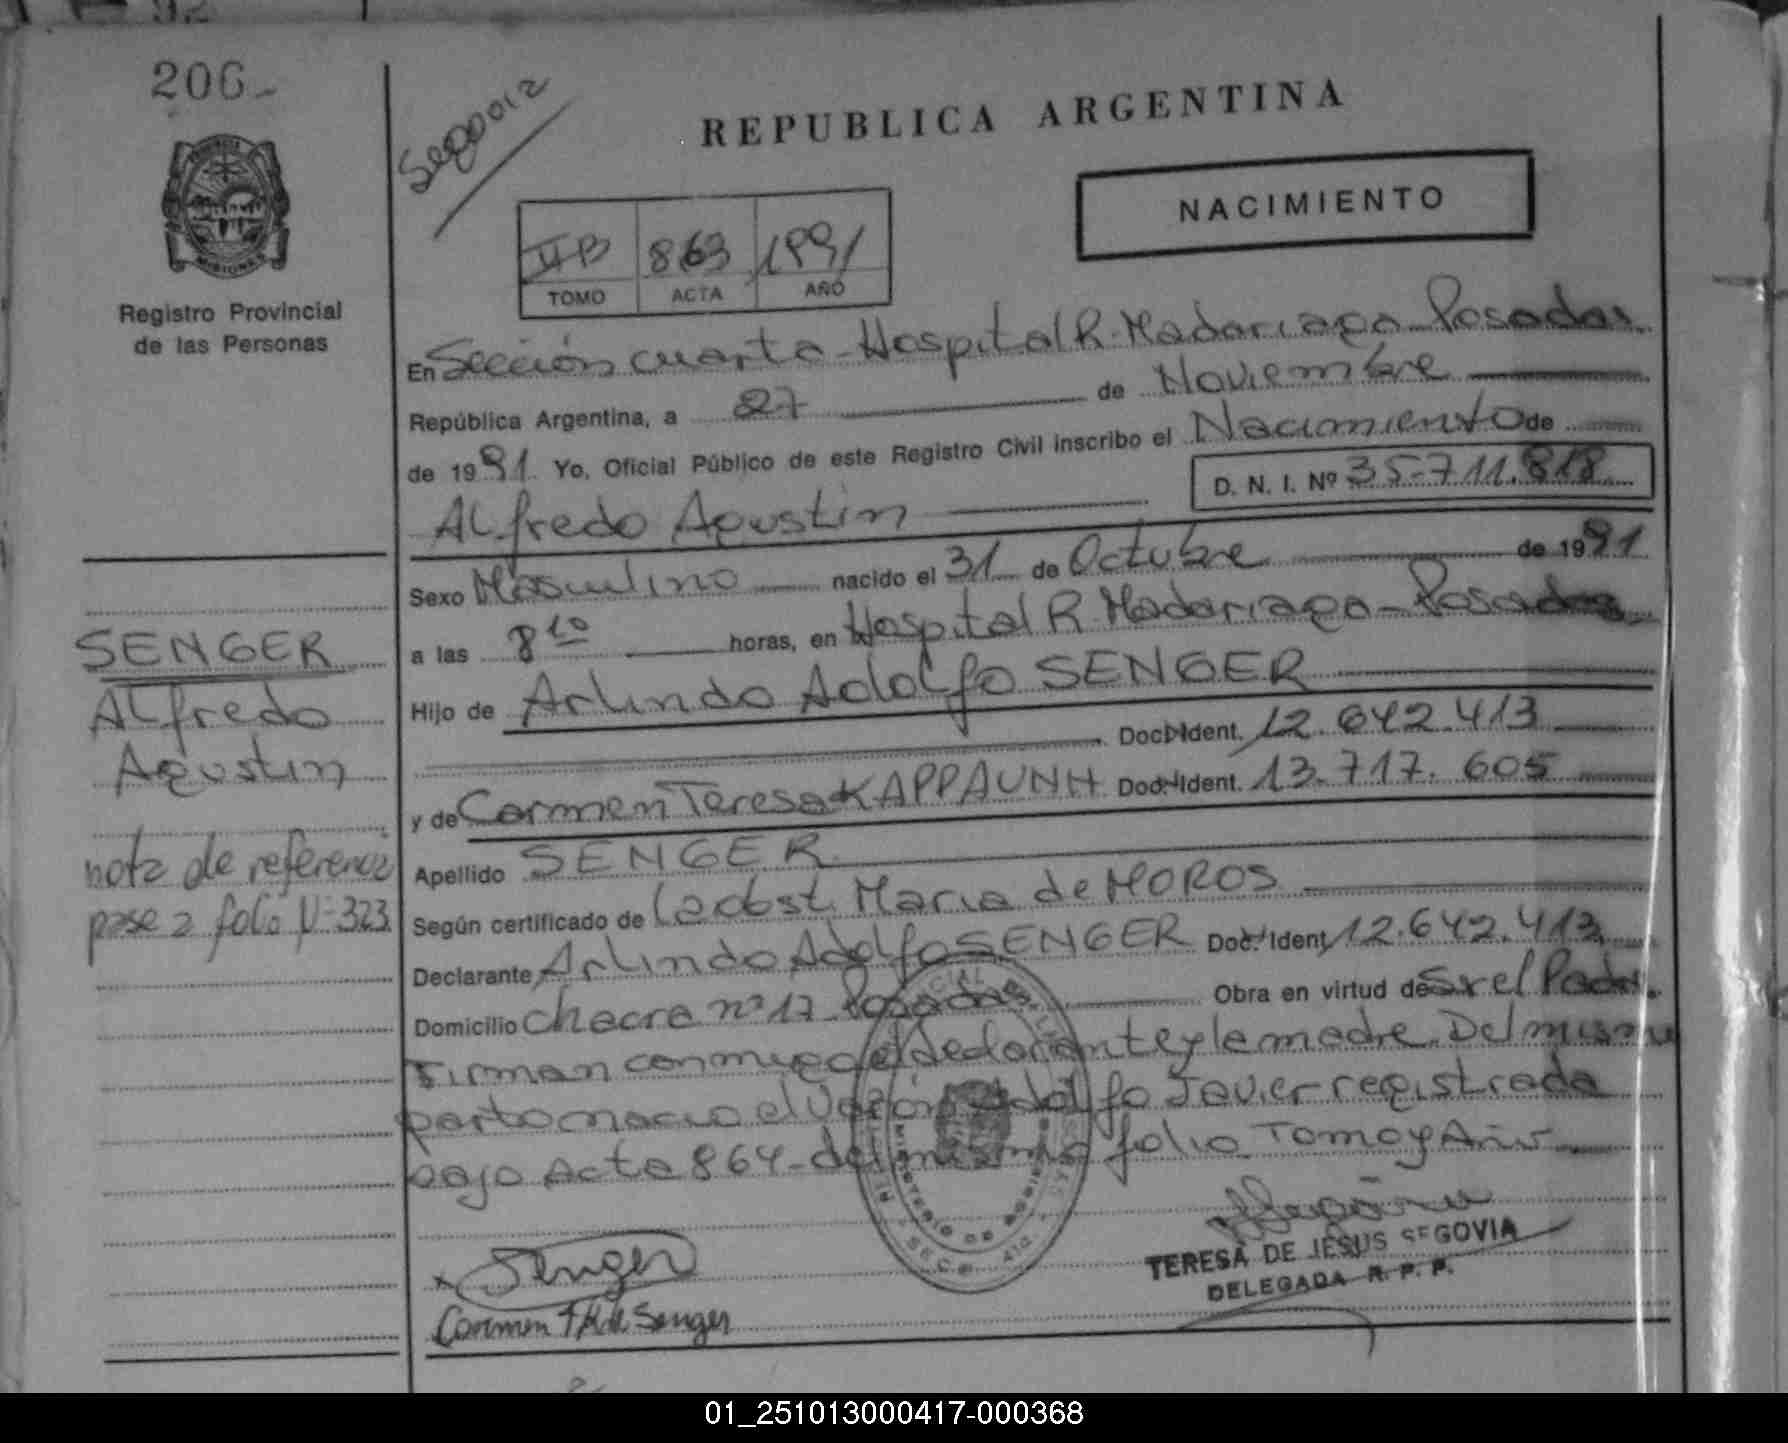 206-
PROVINCIA
MISIONES
Registro Provincial
de las Personas
REPUBLICA ARGENTINA
NACIMIENTO
IIB 863 1991
TOMO ACTA AÑO
En Sección cuarta - Hospital R. Madariaga - Posadas
República Argentina, a 27 de Noviembre
de 1991 Yo, Oficial Público de este Registro Civil inscribo el Nacimiento de
D. N. I. Nº 35-711.818
Alfredo Agustin
Sexo Masculino nacido el 31 de Octubre de 1991
a las 8 10 horas, en Hospital R. Madariaga - Posadas
Hijo de Arlindo Adolfo SENGER
Doc. Ident. 12.642.413
y de Carmen Teresa KAPPAUNH Doc. Ident. 13.717.605
Apellido SENGER
Según certificado de la obst. Maria de MOROS
Declarante Arlindo Adolfo SENGER Doc. Ident. 12.642.413
Domicilio Chacra nº 17 Posadas Obra en virtud de Sr el Padre.
Firman conmigo el declarante y la madre. Del mismo
parto nacio el Varón Adolfo Javier registrado
bajo Acta 864 - del mismo folio Tomo y Año
Senger
Carmen de Senger
TERESA DE JESUS SEGOVIA
DELEGADA R. P. P.
SENGER
Alfredo
Agustin
nota de referencia
pase a folio Nº 323
01_251013000417-000368